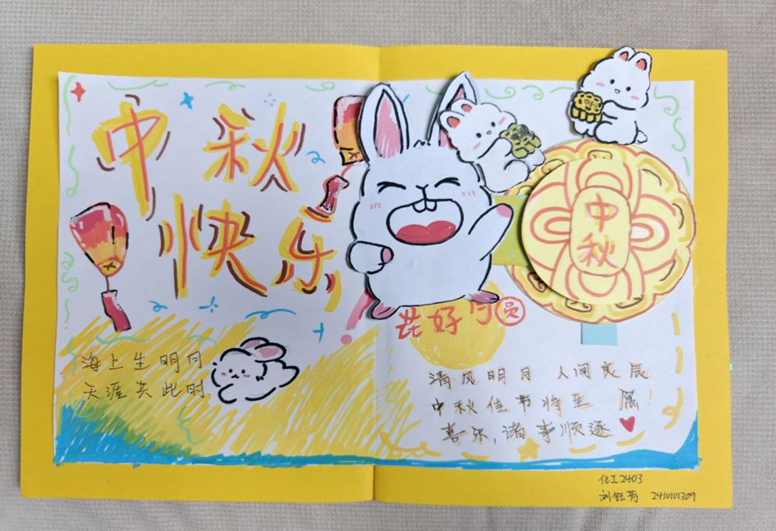 中秋
快乐
花好月圆
中秋
海上生明月
天涯共此时
清风明月 人间
中秋佳节将至 展!
喜乐,诸事顺遂
化工2403
刘 芳 2410101309